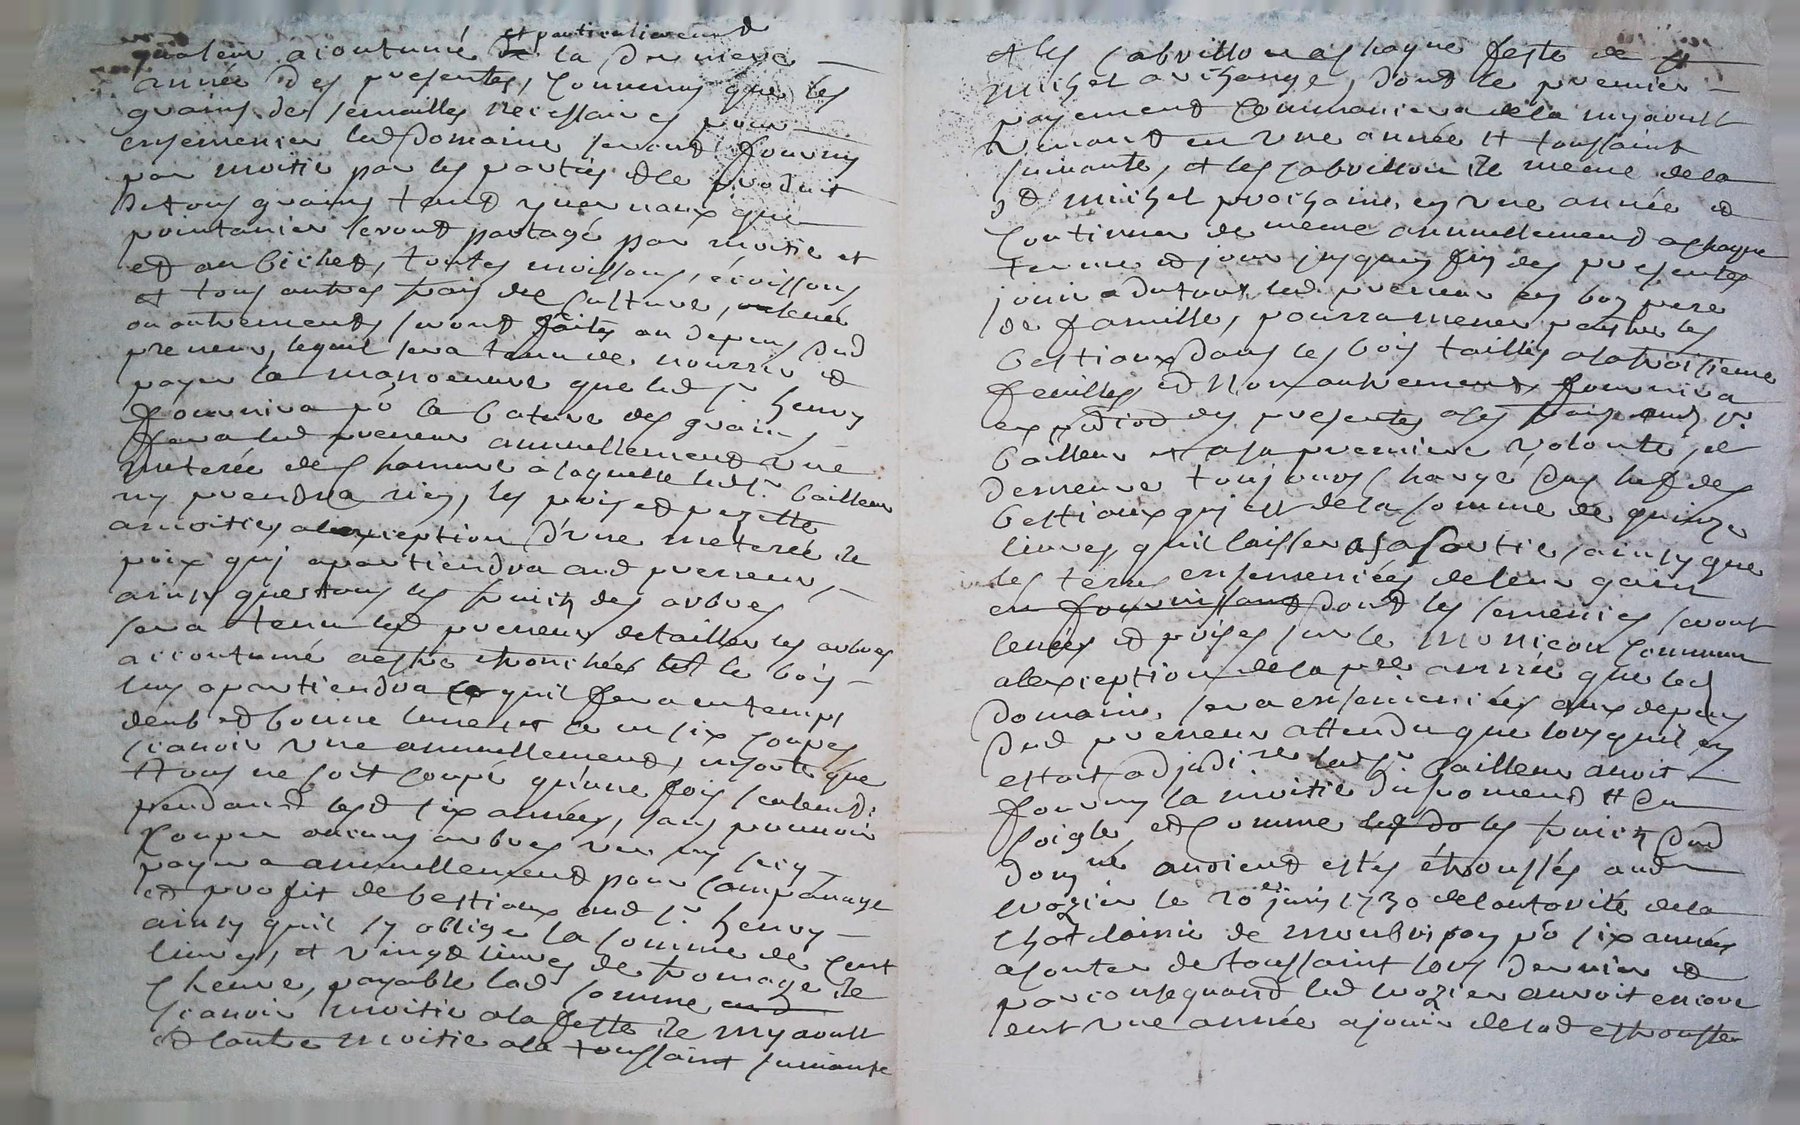 et particulierement
qualeur acoutumé la derniere
année des presentes, convenu que les
grains de semailles necessaires pour
ensemencer led domaine seront fournis
par moitie par les parties et le produit
de tous grains tand yvernaux que
printanier seront partagé par moitie et
et au bichet, toutes moissons,
et tous autres frais de culture,
ou autrements seront faites au depens dud
preneur, lequel sera tenu de nourrir et
payer la manoeuvre que led sr henry
fournira pr la bature des grains
sera led preneur annuellement une
meterée de chanvre a laquelle led sr bailleur
ny prendra rien, les pois et pezette
a moities a lexception d'une meterée de
poix qui apartiendra aud preneur,
ainsy que tous les fruich des arbres
sera tenu led preneur detailler les arbres
accoutumé aestre tronchées et le bois
luy apartiendra quil fera en temps
deub et bonne lune et en six coupes
scauoir une annuellement, en sorte que
tous ne soit coupé qu'une fois seulemt
pendand lesd six années, sans pouuoir
couper aucuns arbres
payera annuellement pour
et profit de bestiaux aud sr henry
ainsy quil sy oblige la somme de cent
liures, et vingt liures de fromage de
cheure, payable lad somme
scauoir moitie a la feste de myaoust
et lautre moitie a la toussaint suiuante
et les cabrillon a chaque feste de st
michel archange, dont le premier
payement commancera de la myaoust
venand en une année et toussaint
suiuante, et les cabrillon de meme de la
st michel prochaine en une année et
continuer de meme annuellement a chaque
terme et jour jusqua fin des presentes
jouira du tout led preneur en bon pere
de famille, pourra mener paistre les
bestiaux dans les bois taillis a la troisieme
feuilles, et non autrement fournira
expedion des presentes a ses frais aud sr
bailleur et a sa premiere volonté, et
demeure toujours chargé du chef des
bestiaux qui est de la somme de quinze
liures, quil laissera a sa sortie, ainsy que
les terres ensemencées de leur gain
en fournissant dont les semences seront
leuées et prises sur le monceau commun
a lexception de la pre année que led
domaine, sera ensemencées aux depens
dud preneur attendu que lors quil en
estoit adjudire led sr bailleur auoit
fourny la moitie du froment et du
soigle, et comme les fruich dud
domne auoient estés étroussés aud
crozier le 20e juin 1730 de lautorité de la
chatelainie de pr six années
a conter de toussaint lors dernier et
par consequand led crozier auroit encore
eut une année a jouir de lad estrousse